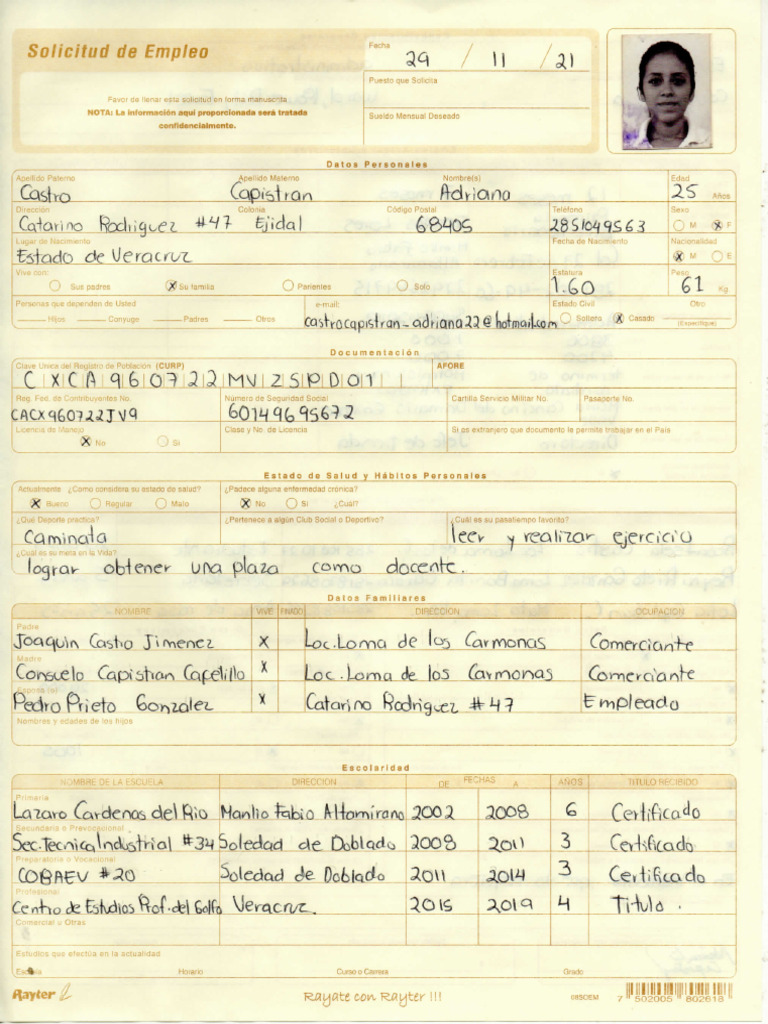 Solicitud de Empleo
Favor de llenar esta solicitud en forma manuscrita
NOTA: La información aquí proporcionada será tratada
confidencialmente.
Fecha
29 / 11 / 21
Puesto que Solicita
Sueldo Mensual Deseado
Datos Personales
Apellido Paterno Apellido Materno Nombre(s) Edad
Castro Capistran Adriana 25 Años
Dirección Colonia Código Postal Teléfono Sexo
Catarino Rodriguez #47 Ejidal 68405 2851049563 M X F
Lugar de Nacimiento Fecha de Nacimiento Nacionalidad
Estado de Veracruz X M E
Vive con: Estatura Peso
Sus padres X Su familia Parientes Solo 1.60 61 Kg
Personas que dependen de Usted e-mail: Estado Civil Otro
Hijos Conyuge Padres Otros castrocapistran_adriana22@hotmail.com Soltero X Casado (Especifique)
Documentación
Clave Unica del Registro de Población (CURP) AFORE
CXCA960722MVZSPD01
Reg. Fed. de Contribuyentes No. Número de Seguridad Social Cartilla Servicio Militar No. Pasaporte No.
CACX960722JV9 60149695672
Licencia de Manejo Clase y No. de Licencia Si es extranjero que documento le permite trabajar en el País
X No Si
Estado de Salud y Hábitos Personales
Actualmente ¿Como considera su estado de salud? ¿Padece alguna enfermedad crónica?
X Bueno Regular Malo X No Si ¿Cuál?
¿Que Deporte practica? ¿Pertenece a algún Club Social o Deportivo? ¿Cuál es su pasatiempo favorito?
Caminata leer y realizar ejercicio
¿Cuál es su meta en la Vida?
lograr obtener una plaza como docente.
Datos Familiares
NOMBRE VIVE FINADO DIRECCION OCUPACION
Padre
Joaquin Castro Jimenez X Loc. Loma de los Carmonas Comerciante
Madre
Consuelo Capistran Capetillo X Loc. Loma de los Carmonas Comerciante
Esposa (o)
Pedro Prieto Gonzalez X Catarino Rodriguez #47 Empleado
Nombres y edades de los hijos
Escolaridad
NOMBRE DE LA ESCUELA DIRECCION DE FECHAS A AÑOS TITULO RECIBIDO
Primaria
Lazaro Cardenas del Rio Manlio Fabio Altamirano 2002 2008 6 Certificado
Secundaria o Prevocacional
Sec. Tecnica Industrial #34 Soledad de Doblado 2008 2011 3 Certificado
Preparatoria o Vocacional
COBAEV #20 Soledad de Doblado 2011 2014 3 Certificado
Profesional
Centro de Estudios Prof. del Golfo Veracruz. 2015 2019 4 Titulo.
Comercial u Otras
Estudios que efectúa en la actualidad
Escuela Horario Curso o Carrera Grado
Rayter Rayate con Rayter !!! 7 502005 802618